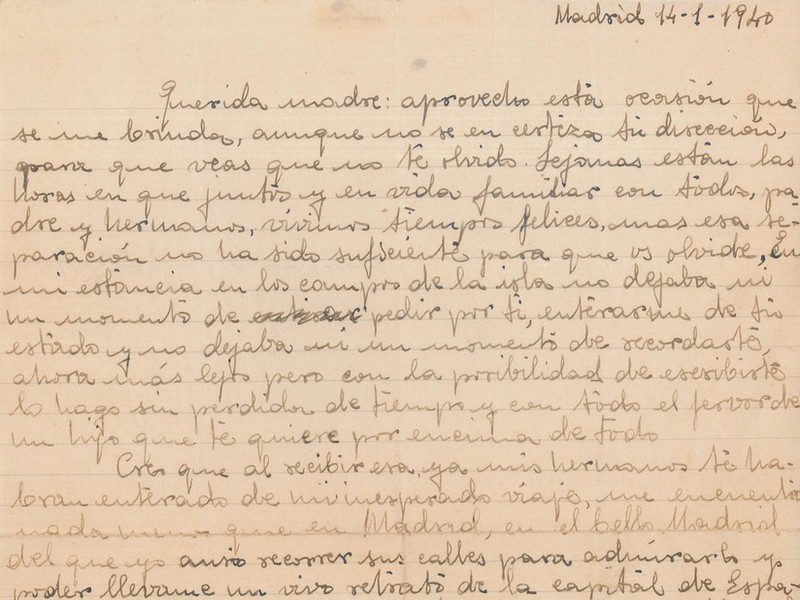 Madrid 14-1-1940
Querida madre: aprovecho esta ocasión que
se me brinda, aunque no se en certeza tu dirección,
para que veas que no te olvido. Lejanas están las
horas en que juntos y en vida familiar con todos, pa-
dre y hermanos, vivimos tiempos felices, mas esa se-
paración no ha sido suficiente para que os olvide, En
mi estancia en los campos de la isla no dejaba ni
un momento de pedir por ti, enterarme de tu
estado y no dejaba ni un momento de recordarte,
ahora más lejos pero con la posibilidad de escribirte
lo hago sin perdida de tiempo y con todo el fervor de
un hijo que te quiere por encima de todo
Creo que al recibir esa, ya mis hermanos te ha-
bran enterado de mi inesperado viaje, me encuentro
nada menos que en Madrid, en el bello Madrid
del que yo ansio recorrer sus calles para admirarlo y
poder llevame un vivo retrato de la capital de Espa-